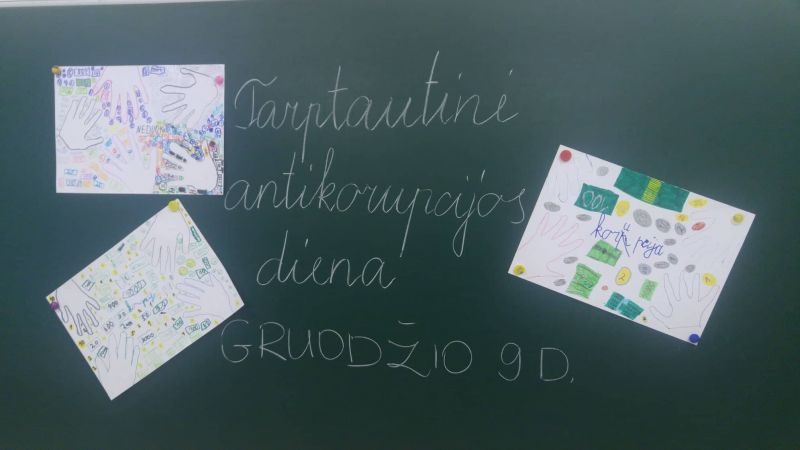 Tarptautinė
antikorupcijos
diena
GRUODŽIO 9 D.
korupcija